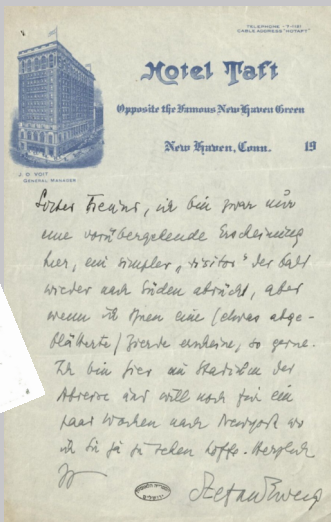 TELEPHONE · 7-1121
CABLE ADDRESS "HOTAFT"
Hotel Taft
Opposite the Famous New Haven Green
New Haven, Conn. 19
J. O. VOIT
GENERAL MANAGER
Lieber Freund, ich bin zwar nur
eine vorübergehende Erscheinung
hier, ein simpler „visitor" der bald
wieder nach Süden abrückt, aber
wenn ich Ihnen eine (etwas abge-
blätterte) Zierde erscheine, so gerne.
Ich bin hier im Stadium der
Abreise und will noch für ein
paar Wochen nach Newyork wo
ich Sie ja zu sehen hoffe. Herzlich
Stefan Zweig